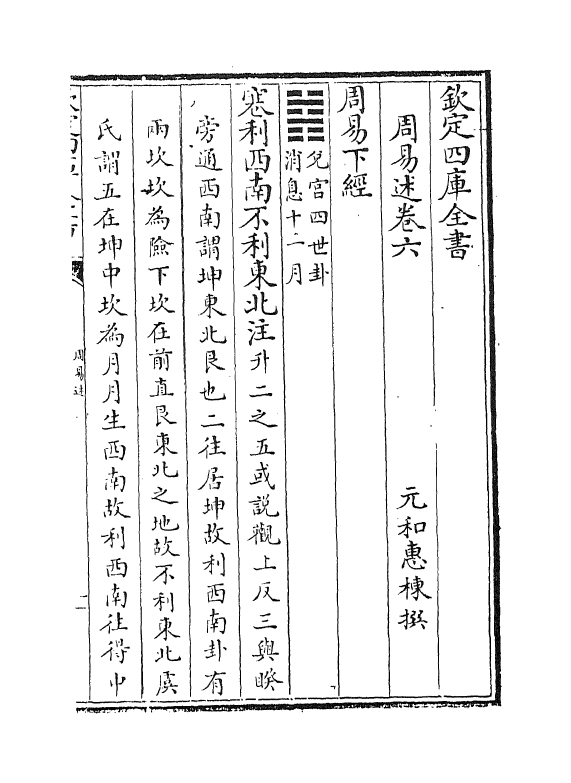 欽定四庫全書
周易述卷六
元和惠棟撰
周易下經
兌宮四世卦
消息十一月
蹇利西南不利東北注升二之五或說觀上反三與睽
旁通西南謂坤東北艮也二往居坤故利西南卦有
兩坎坎為險下坎在前直艮東北之地故不利東北虞
氏謂五在坤中坎為月月生西南故利西南往得中
周易述